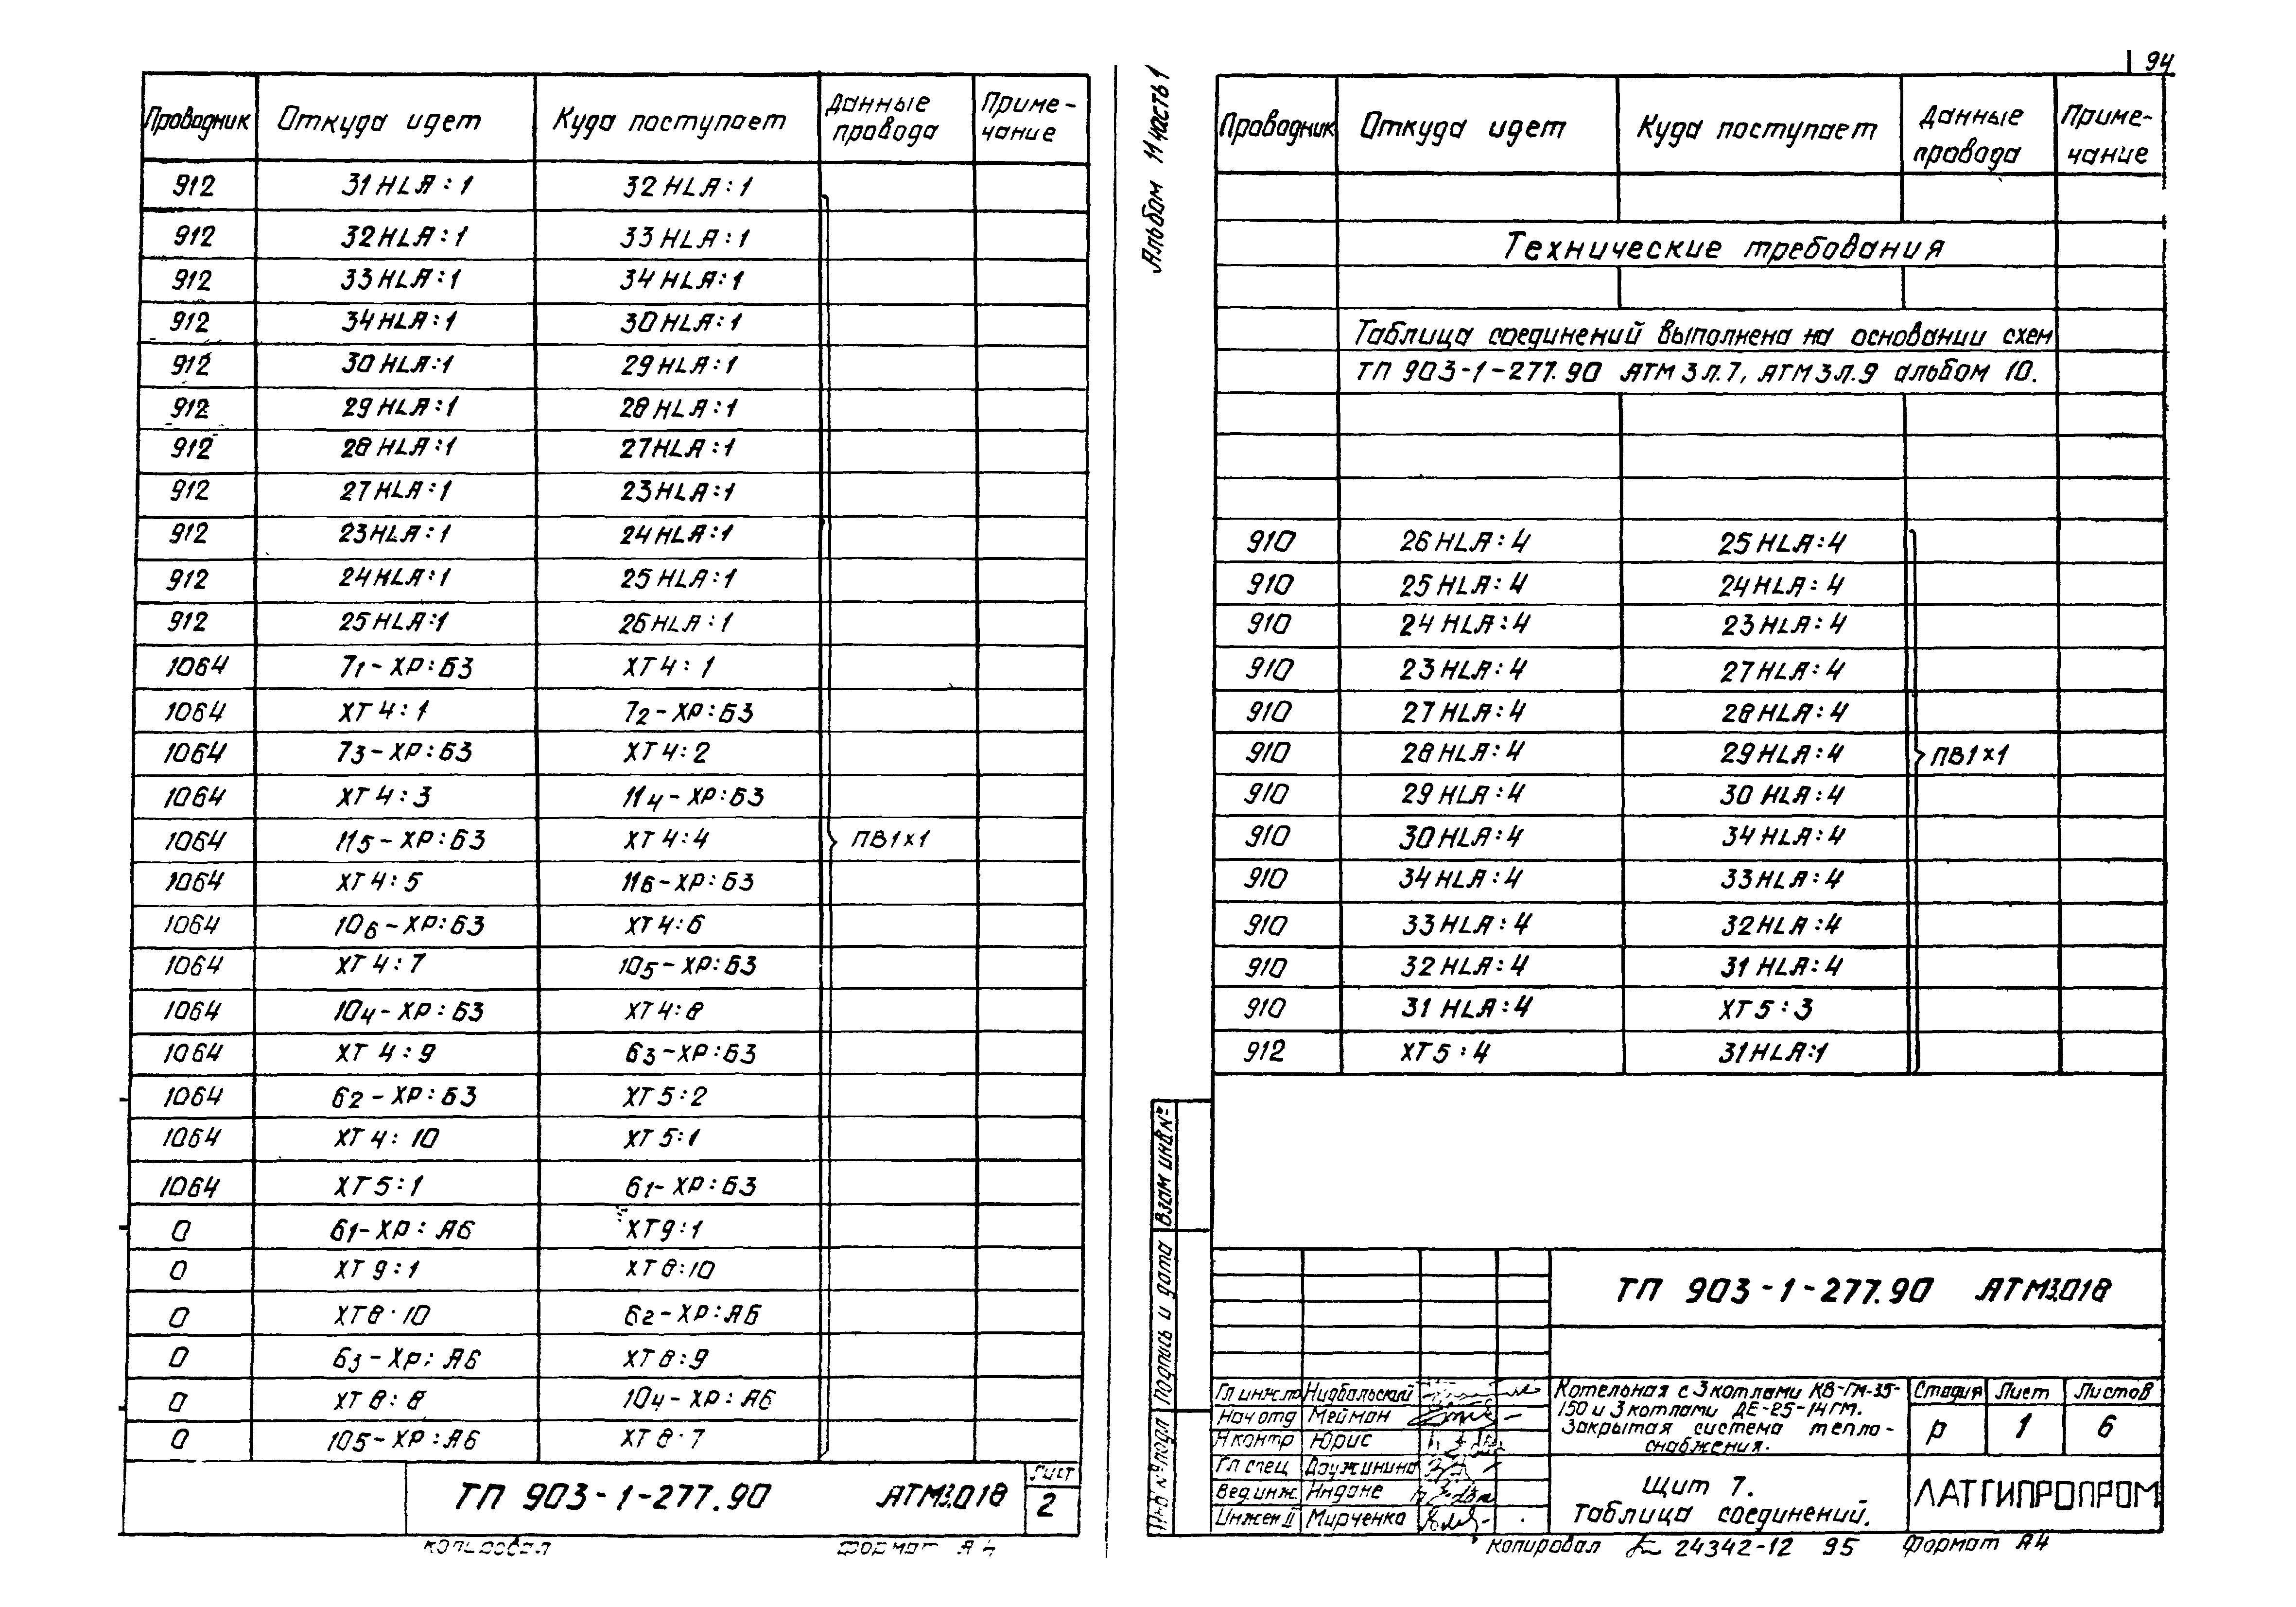 Проводник | Откуда идет | Куда поступает | Данные провода | Приме-чание
912 | 31HLA:1 | 32HLA:1
912 | 32HLA:1 | 33HLA:1
912 | 33HLA:1 | 34HLA:1
912 | 34HLA:1 | 30HLA:1
912 | 30HLA:1 | 29HLA:1
912 | 29HLA:1 | 28HLA:1
912 | 28HLA:1 | 27HLA:1
912 | 27HLA:1 | 23HLA:1
912 | 23HLA:1 | 24HLA:1
912 | 24HLA:1 | 25HLA:1
912 | 25HLA:1 | 26HLA:1
1064 | 71-XP:Б3 | XT4:1
1064 | XT4:1 | 72-XP:Б3
1064 | 73-XP:Б3 | XT4:2
1064 | XT4:3 | 114-XP:Б3
1064 | 115-XP:Б3 | XT4:4 | ПВ1x1
1064 | XT4:5 | 116-XP:Б3
1064 | 106-XP:Б3 | XT4:6
1064 | XT4:7 | 105-XP:Б3
1064 | 104-XP:Б3 | XT4:8
1064 | XT4:9 | 63-XP:Б3
1064 | 62-XP:Б3 | XT5:2
1064 | XT4:10 | XT5:1
1064 | XT5:1 | 61-XP:Б3
0 | 61-XP:A6 | XT9:1
0 | XT9:1 | XT8:10
0 | XT8:10 | 62-XP:A6
0 | 63-XP:A6 | XT8:9
0 | XT8:8 | 104-XP:A6
0 | 105-XP:A6 | XT8:7
ТП 903-1-277.90 АТМ3.018
Лист
2
Копировал формат А4
Альбом 11 часть 1
94
Проводник | Откуда идет | Куда поступает | Данные провода | Приме-чание
Технические требования
Таблица соединений выполнена на основании схем
ТП 903-1-277.90 АТМ3л.7, АТМ3л.9 альбом 10.
910 | 26HLA:4 | 25HLA:4
910 | 25HLA:4 | 24HLA:4
910 | 24HLA:4 | 23HLA:4
910 | 23HLA:4 | 27HLA:4
910 | 27HLA:4 | 28HLA:4
910 | 28HLA:4 | 29HLA:4 | ПВ1x1
910 | 29HLA:4 | 30HLA:4
910 | 30HLA:4 | 34HLA:4
910 | 34HLA:4 | 33HLA:4
910 | 33HLA:4 | 32HLA:4
910 | 32HLA:4 | 31HLA:4
910 | 31HLA:4 | XT5:3
912 | XT5:4 | 31HLA:1
Взам инв№
Подпись и дата
Инв №подл
ТП 903-1-277.90 АТМ3.018
Гл инж.пр Нидбальский
Нач отд Мейман
Н контр Юрис
Гл спец Дружинина
Вед.инж. Индане
Инжен II Мирченка
Котельная с 3 котлами КВ-ГМ-35-
150 и 3 котлами ДЕ-25-14ГМ.
Закрытая система тепло-
снабжения.
Стадия | Лист | Листов
Р | 1 | 6
Щит 7.
Таблица соединений.
ЛАТГИПРОПРОМ
Копировал 24342-12 95 формат А4